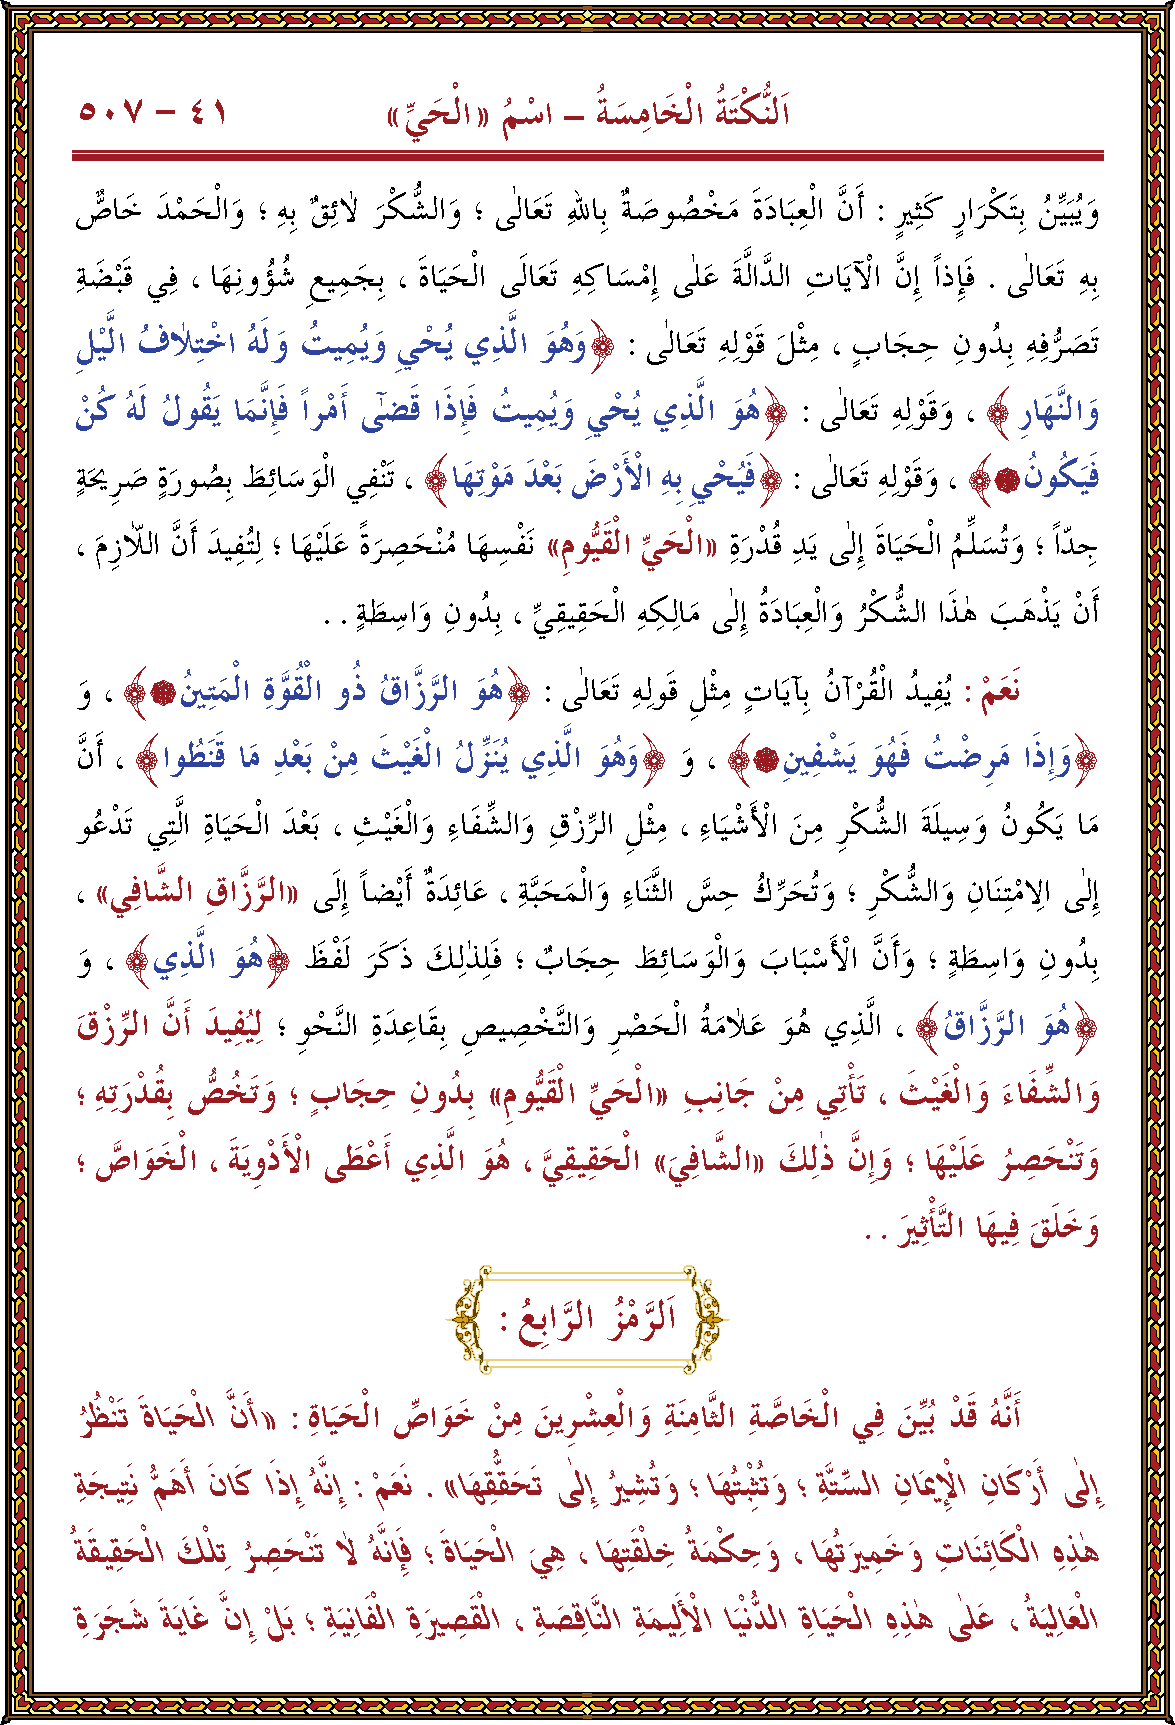 اَلنُّكْتَةُ الْخَامِسَةُ – اسْمُ «الْحَيِّ» ٤١ – ٥٠٧
وَيُبَيِّنُ بِتَكْرَارٍ كَثِيرٍ : أَنَّ الْعِبَادَةَ مَخْصُوصَةٌ بِاللهِ تَعَالٰى ؛ وَالشُّكْرَ لاٰئِقٌ بِهِ ؛ وَالْحَمْدَ خَاصٌّ
بِهِ تَعَالٰى . فَإِذاً إِنَّ الْاٰيَاتِ الدَّالَّةَ عَلٰى إِمْسَاكِهِ تَعَالَى الْحَيَاةَ ، بِجَمِيعِ شُؤُونِهَا ، فِي قَبْضَةِ
تَصَرُّفِهِ بِدُونِ حِجَابٍ ، مِثْلَ قَوْلِهِ تَعَالٰى : ﴿وَهُوَ الَّذِي يُحْيِي وَيُمِيتُ وَلَهُ اخْتِلاٰفُ الَّيْلِ
وَالنَّهَارِ﴾ ، وَقَوْلِهِ تَعَالٰى : ﴿هُوَ الَّذِي يُحْيِي وَيُمِيتُ فَإِذَا قَضٰٓى أَمْراً فَإِنَّمَا يَقُولُ لَهُ كُنْ
فَيَكُونُ﴾ ، وَقَوْلِهِ تَعَالٰى : ﴿فَيُحْيِي بِهِ الْأَرْضَ بَعْدَ مَوْتِهَا﴾ ، تَنْفِي الْوَسَائِطَ بِصُورَةٍ صَرِيحَةٍ
جِدّاً ؛ وَتُسَلِّمُ الْحَيَاةَ إِلٰى يَدِ قُدْرَةِ «الْحَيِّ الْقَيُّومِ» نَفْسِهَا مُنْحَصِرَةً عَلَيْهَا ؛ لِتُفِيدَ أَنَّ اللاّٰزِمَ ،
أَنْ يَذْهَبَ هٰذَا الشُّكْرُ وَالْعِبَادَةُ إِلٰى مَالِكِهِ الْحَقِيقِيِّ ، بِدُونِ وَاسِطَةٍ . .
نَعَمْ : يُفِيدُ الْقُرْآنُ بِآيَاتٍ مِثْلِ قَوْلِهِ تَعَالٰى : ﴿هُوَ الرَّزَّاقُ ذُو الْقُوَّةِ الْمَتِينُ﴾ ، وَ
﴿وَإِذَا مَرِضْتُ فَهُوَ يَشْفِينِ﴾ ، وَ ﴿وَهُوَ الَّذِي يُنَزِّلُ الْغَيْثَ مِنْ بَعْدِ مَا قَنَطُوا﴾ ، أَنَّ
مَا يَكُونُ وَسِيلَةَ الشُّكْرِ مِنَ الْأَشْيَاءِ ، مِثْلِ الرِّزْقِ وَالشِّفَاءِ وَالْغَيْثِ ، بَعْدَ الْحَيَاةِ الَّتِي تَدْعُو
إِلٰى الِامْتِنَانِ وَالشُّكْرِ ؛ وَتُحَرِّكُ حِسَّ الثَّنَاءِ وَالْمَحَبَّةِ ، عَائِدَةٌ أَيْضاً إِلَى «الرَّزَّاقِ الشَّافِي» ،
بِدُونِ وَاسِطَةٍ ؛ وَأَنَّ الْأَسْبَابَ وَالْوَسَائِطَ حِجَابٌ ؛ فَلِذٰلِكَ ذَكَرَ لَفْظَ ﴿هُوَ الَّذِي﴾ ، وَ
﴿هُوَ الرَّزَّاقُ﴾ ، الَّذِي هُوَ عَلاٰمَةُ الْحَصْرِ وَالتَّخْصِيصِ بِقَاعِدَةِ النَّحْوِ ؛ لِيُفِيدَ أَنَّ الرِّزْقَ
وَالشِّفَاءَ وَالْغَيْثَ ، تَأْتِي مِنْ جَانِبِ «الْحَيِّ الْقَيُّومِ» بِدُونِ حِجَابٍ ؛ وَتَخُصُّ بِقُدْرَتِهِ ؛
وَتَنْحَصِرُ عَلَيْهَا ؛ وَإِنَّ ذٰلِكَ «الشَّافِيَ» الْحَقِيقِيَّ ، هُوَ الَّذِي أَعْطَى الْأَدْوِيَةَ ، الْخَوَاصَّ ؛
وَخَلَقَ فِيهَا التَّأْثِيرَ . .
اَلرَّمْزُ الرَّابِعُ :
أَنَّهُ قَدْ بُيِّنَ فِي الْخَاصَّةِ الثَّامِنَةِ وَالْعِشْرِينَ مِنْ خَوَاصِّ الْحَيَاةِ : «أَنَّ الْحَيَاةَ تَنْظُرُ
إِلٰى أَرْكَانِ الْإِيمَانِ السِّتَّةِ ؛ وَتُثْبِتُهَا ؛ وَتُشِيرُ إِلٰى تَحَقُّقِهَا» . نَعَمْ : إِنَّهُ إِذَا كَانَ أَهَمُّ نَتِيجَةِ
هٰذِهِ الْكَائِنَاتِ وَخَمِيرَتُهَا ، وَحِكْمَةُ خِلْقَتِهَا ، هِيَ الْحَيَاةَ ؛ فَإِنَّهُ لاٰ تَنْحَصِرُ تِلْكَ الْحَقِيقَةُ
الْعَالِيَةُ ، عَلٰى هٰذِهِ الْحَيَاةِ الدُّنْيَا الْأَلِيمَةِ النَّاقِصَةِ ، الْقَصِيرَةِ الْفَانِيَةِ ؛ بَلْ إِنَّ غَايَةَ شَجَرَةِ